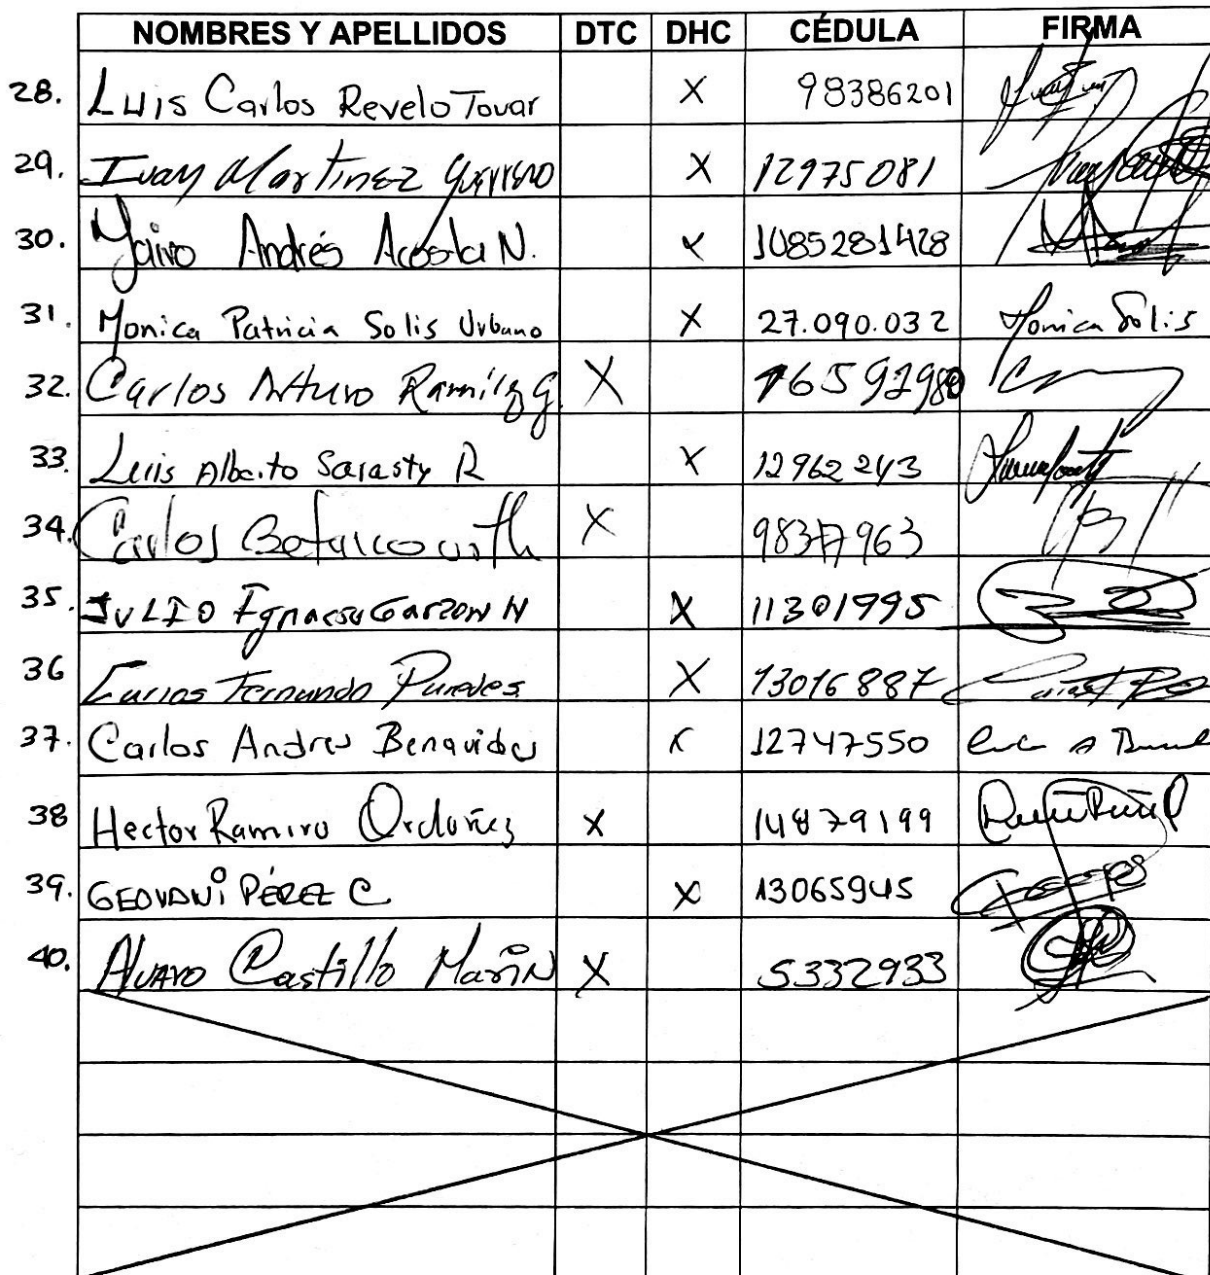 NOMBRES Y APELLIDOS DTC DHC CÉDULA FIRMA
28. Luis Carlos Revelo Tovar X 98386201
29. Ivan Martinez Guerrero X 12975081
30. Jairo Andrés Acosta N. X 1085281428
31. Monica Patricia Solis Urbano X 27.090.032 Monica Solis
32. Carlos Arturo Ramírez G. X 16592980
33. Luis Alberto Sarasty R X 12962243
34. Carlos Betancourth X
35. JULIO Ignacio GARZON N X 11301995
36 Carlos Fernando Paredes X 13016887
37. Carlos Andres Benavides X 12747550
38 Hector Ramiro Ordoñez X 14879199
39. GEOVANi PÉREZ C. X 13065945
40. Alvaro Castillo Marin X 5332933